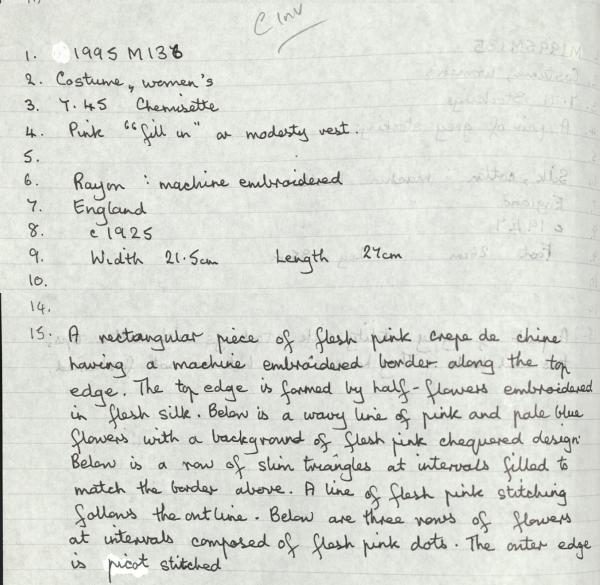 C Inv
1. 1995 M136
2. Costume, women's
3. 7.45 Chemisette
4. Pink "fill in" or modesty vest.
5.
6. Rayon : machine embroidered
7. England
8. c 1925
9. Width 21.5cm Length 27cm
10.
14.
15. A rectangular piece of flesh pink crepe de chine
having a machine embroidered border along the top
edge. The top edge is formed by half-flowers embroidered
in flesh silk. Below is a wavy line of pink and pale blue
flowers with a background of flesh pink chequered design.
Below is a row of slim triangles at intervals filled to
match the border above. A line of flesh pink stitching
follows the outline. Below are three rows of flowers
at intervals composed of flesh pink dots. The outer edge
is picot stitched